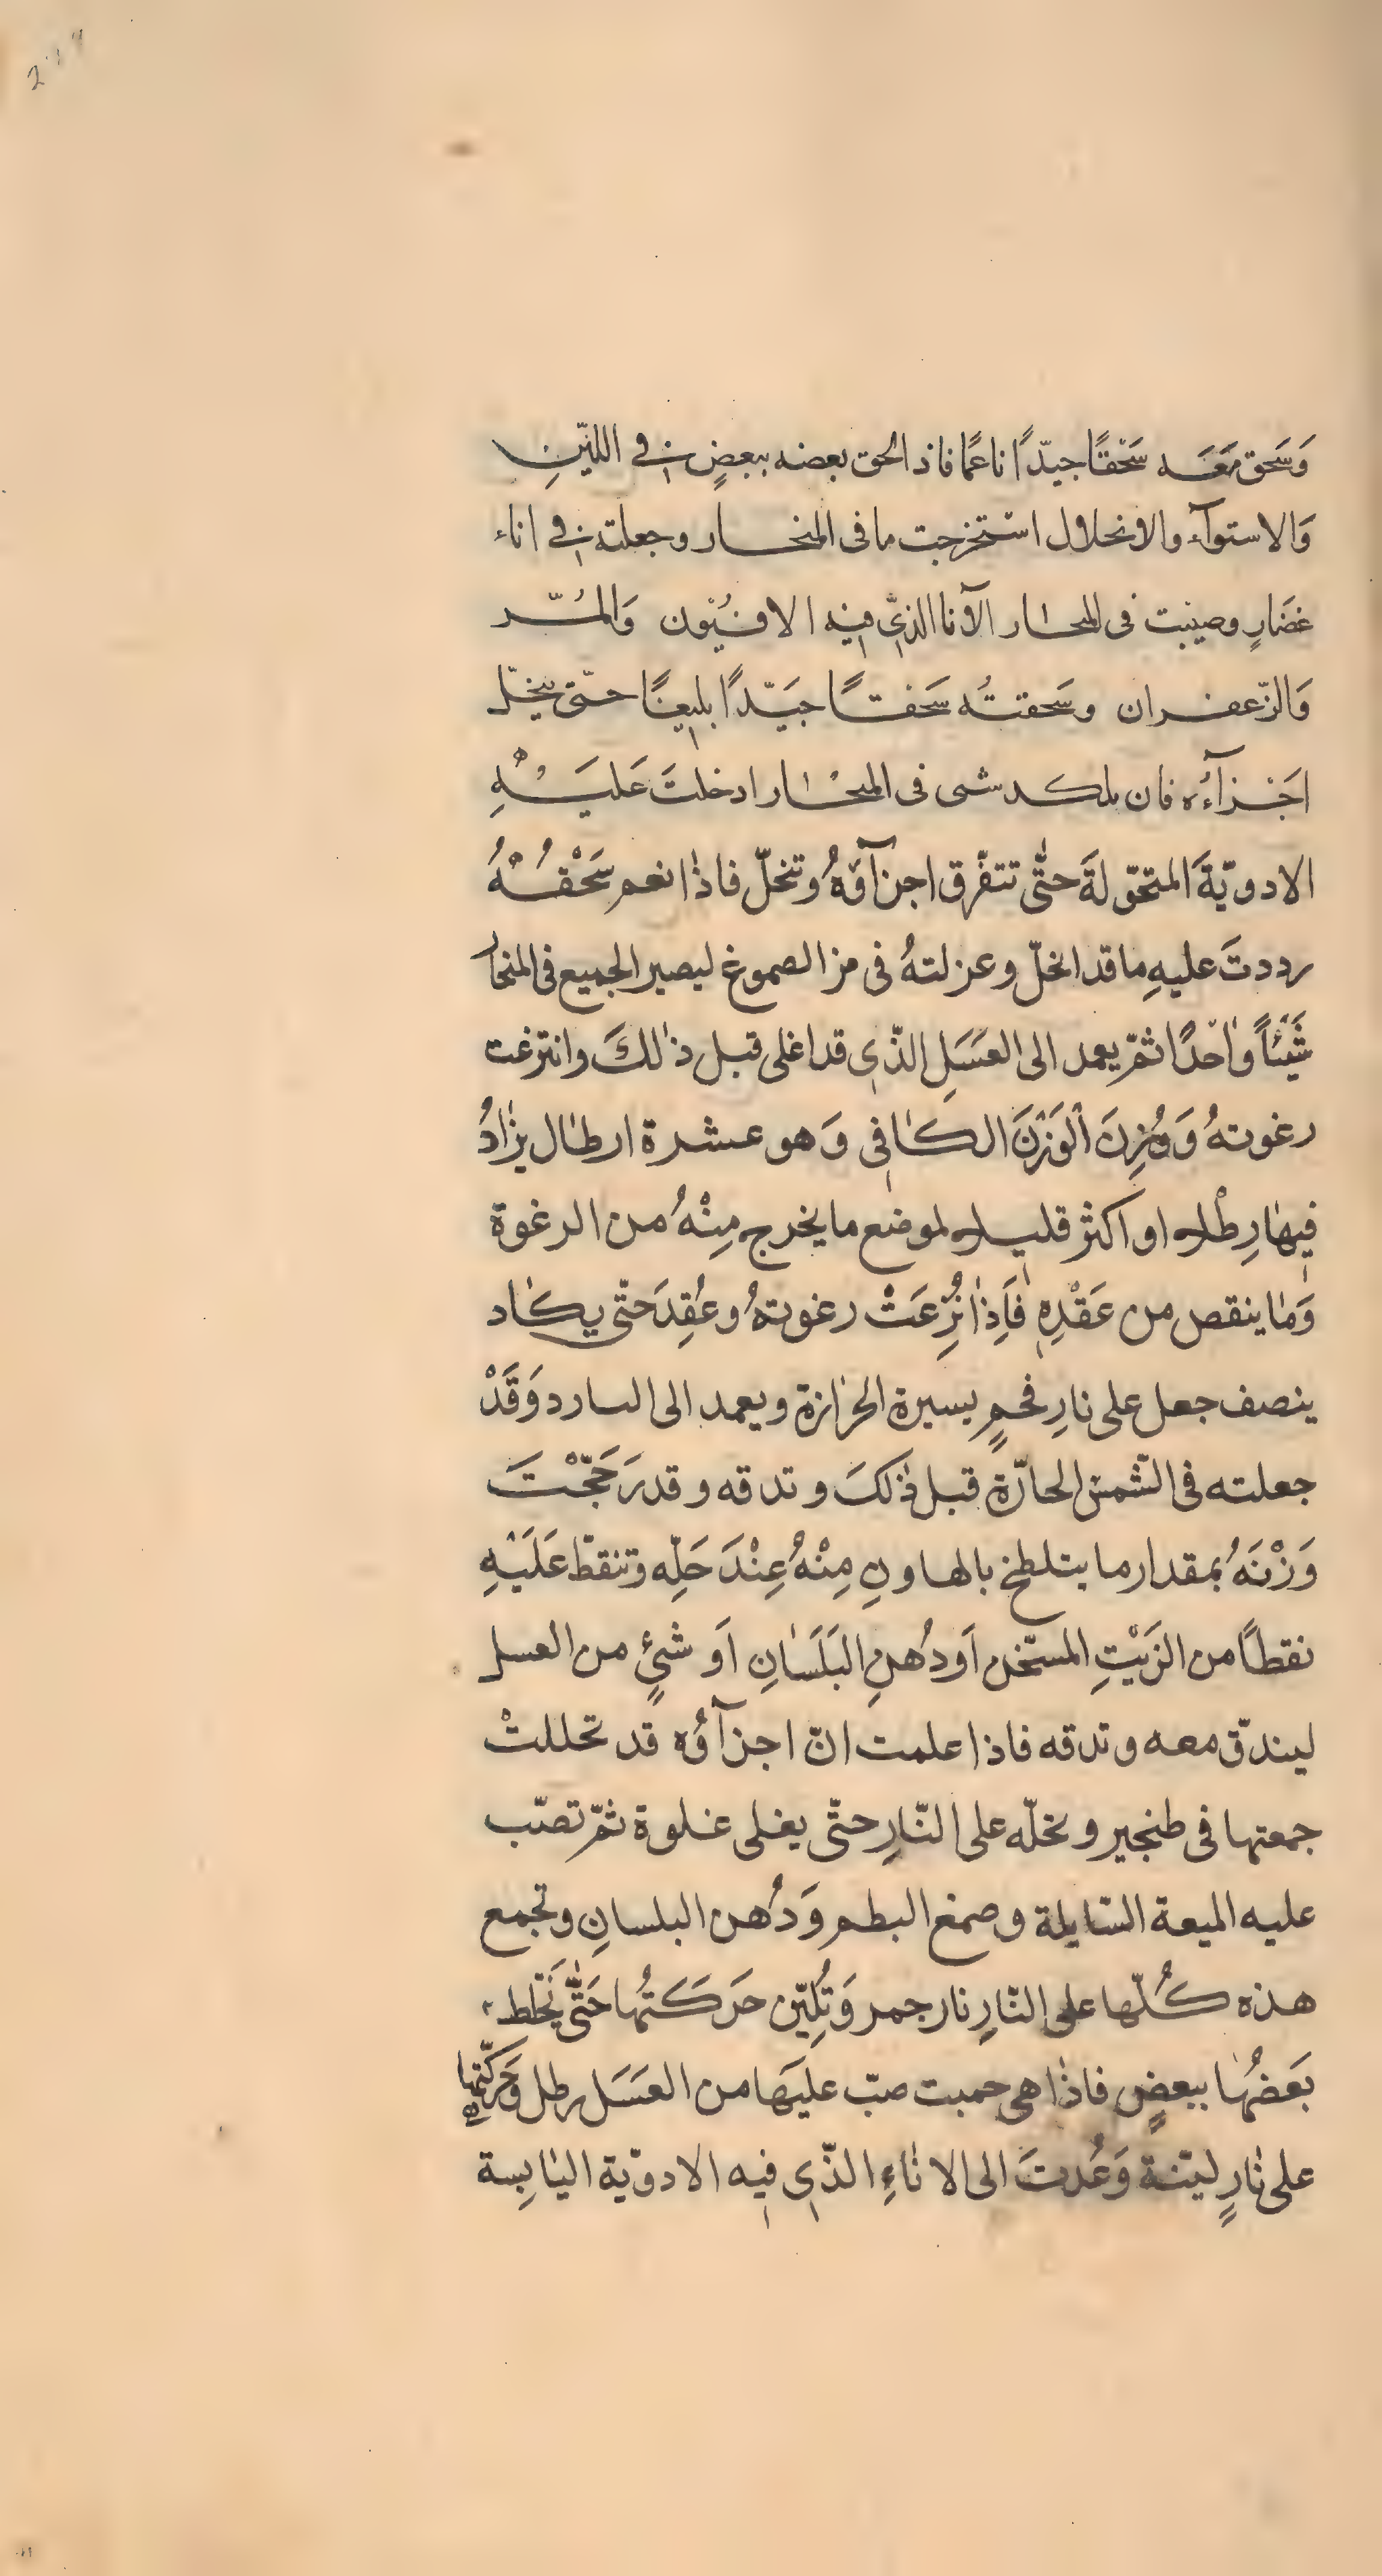 وَسَحق مَعَه سَحْقًا جيّدًا ناعمًا فاذ الحق بعضه ببعضٍ في اللّيّنِ
وَالاستوآء والانحلال استخرجت ما فى المنخار وجعلته في اناء
غضَارٍ وصيّبت فى المنحار الآنا الذّي فيه الافيُون وَالمُرّ
وَالزّعفران وسَحقتُه سَحقًا جَيّدًا بليغًا حتّى ينحلّ
اجْزآءُه فان شى فى المنحار ادخلتَ عَليَْهِ
الادويّةَ المتحّولةَ حتّى تتفّرق اجزآؤهُ وتنحلّ فاذا نعم سَحْقُهُ
رددتَ عليهِ ما قد انحلّ وعزلتهُ فى من الصموغ ليصير الجميع فى المنحار
شَيْئاً وَاحدًا ثمّ يعمد الى العَسَلِ الذّي قد اغلى قبل ذالكَ وانتزعت
رغوتهُ وَوُزِنَ الْوَزْنَ الكافي وَهو عشرة ارطال يزادُ
فيها رِطْل او اكثر قليل لموضع ما يخرج مِنْهُ من الرغوة
وَما ينقص من عَقْدِهِ فَاِذا نُزِعَتْ رغوتهُ وعُقِدَ حتّى يكاد
ينصف جعل على نارِ فحمٍ يسيرة الحرَازة ويعمد الى البارد وَقَدْ
جعلته فى الشّمس الحارّة قبل ذٰلكَ وتدقه وقد رَجّحْتَ
وَزْنَهُ بمقدار ما يتلطخ بالهاونِ مِنْهُ عِنْدَ حَلِّه وتنقطّ عَلَيْهِ
نقطاً من الزَيْتِ المسّخن اَو دُهنِ البَلَسَانِ اَو شيٍ من العسل
ليندقّ معه وتدقه فاذا علمت انّ اجزآؤه قد تحللتْ
جمعتها فى طنجير ونحلّه على النّارِ حتّى يغلى غلوة ثمّ تصّب
عليه الميعة السّايلة وصمغ البطم وَدُهن البلسانِ وتجمع
هذه كُلّها على النّارِ نار جمر وَتُلِيّن حَركَتُها حَتّى يَخْتلط
بَعضُها ببعضٍ فاذا هى حميت صبّ عليهَا من العَسَل رطل وَحَركّتها
على نارٍ ليّنة وَعُدتَ الى الاناءِ الذّي فيه الادويّة اليابِسة